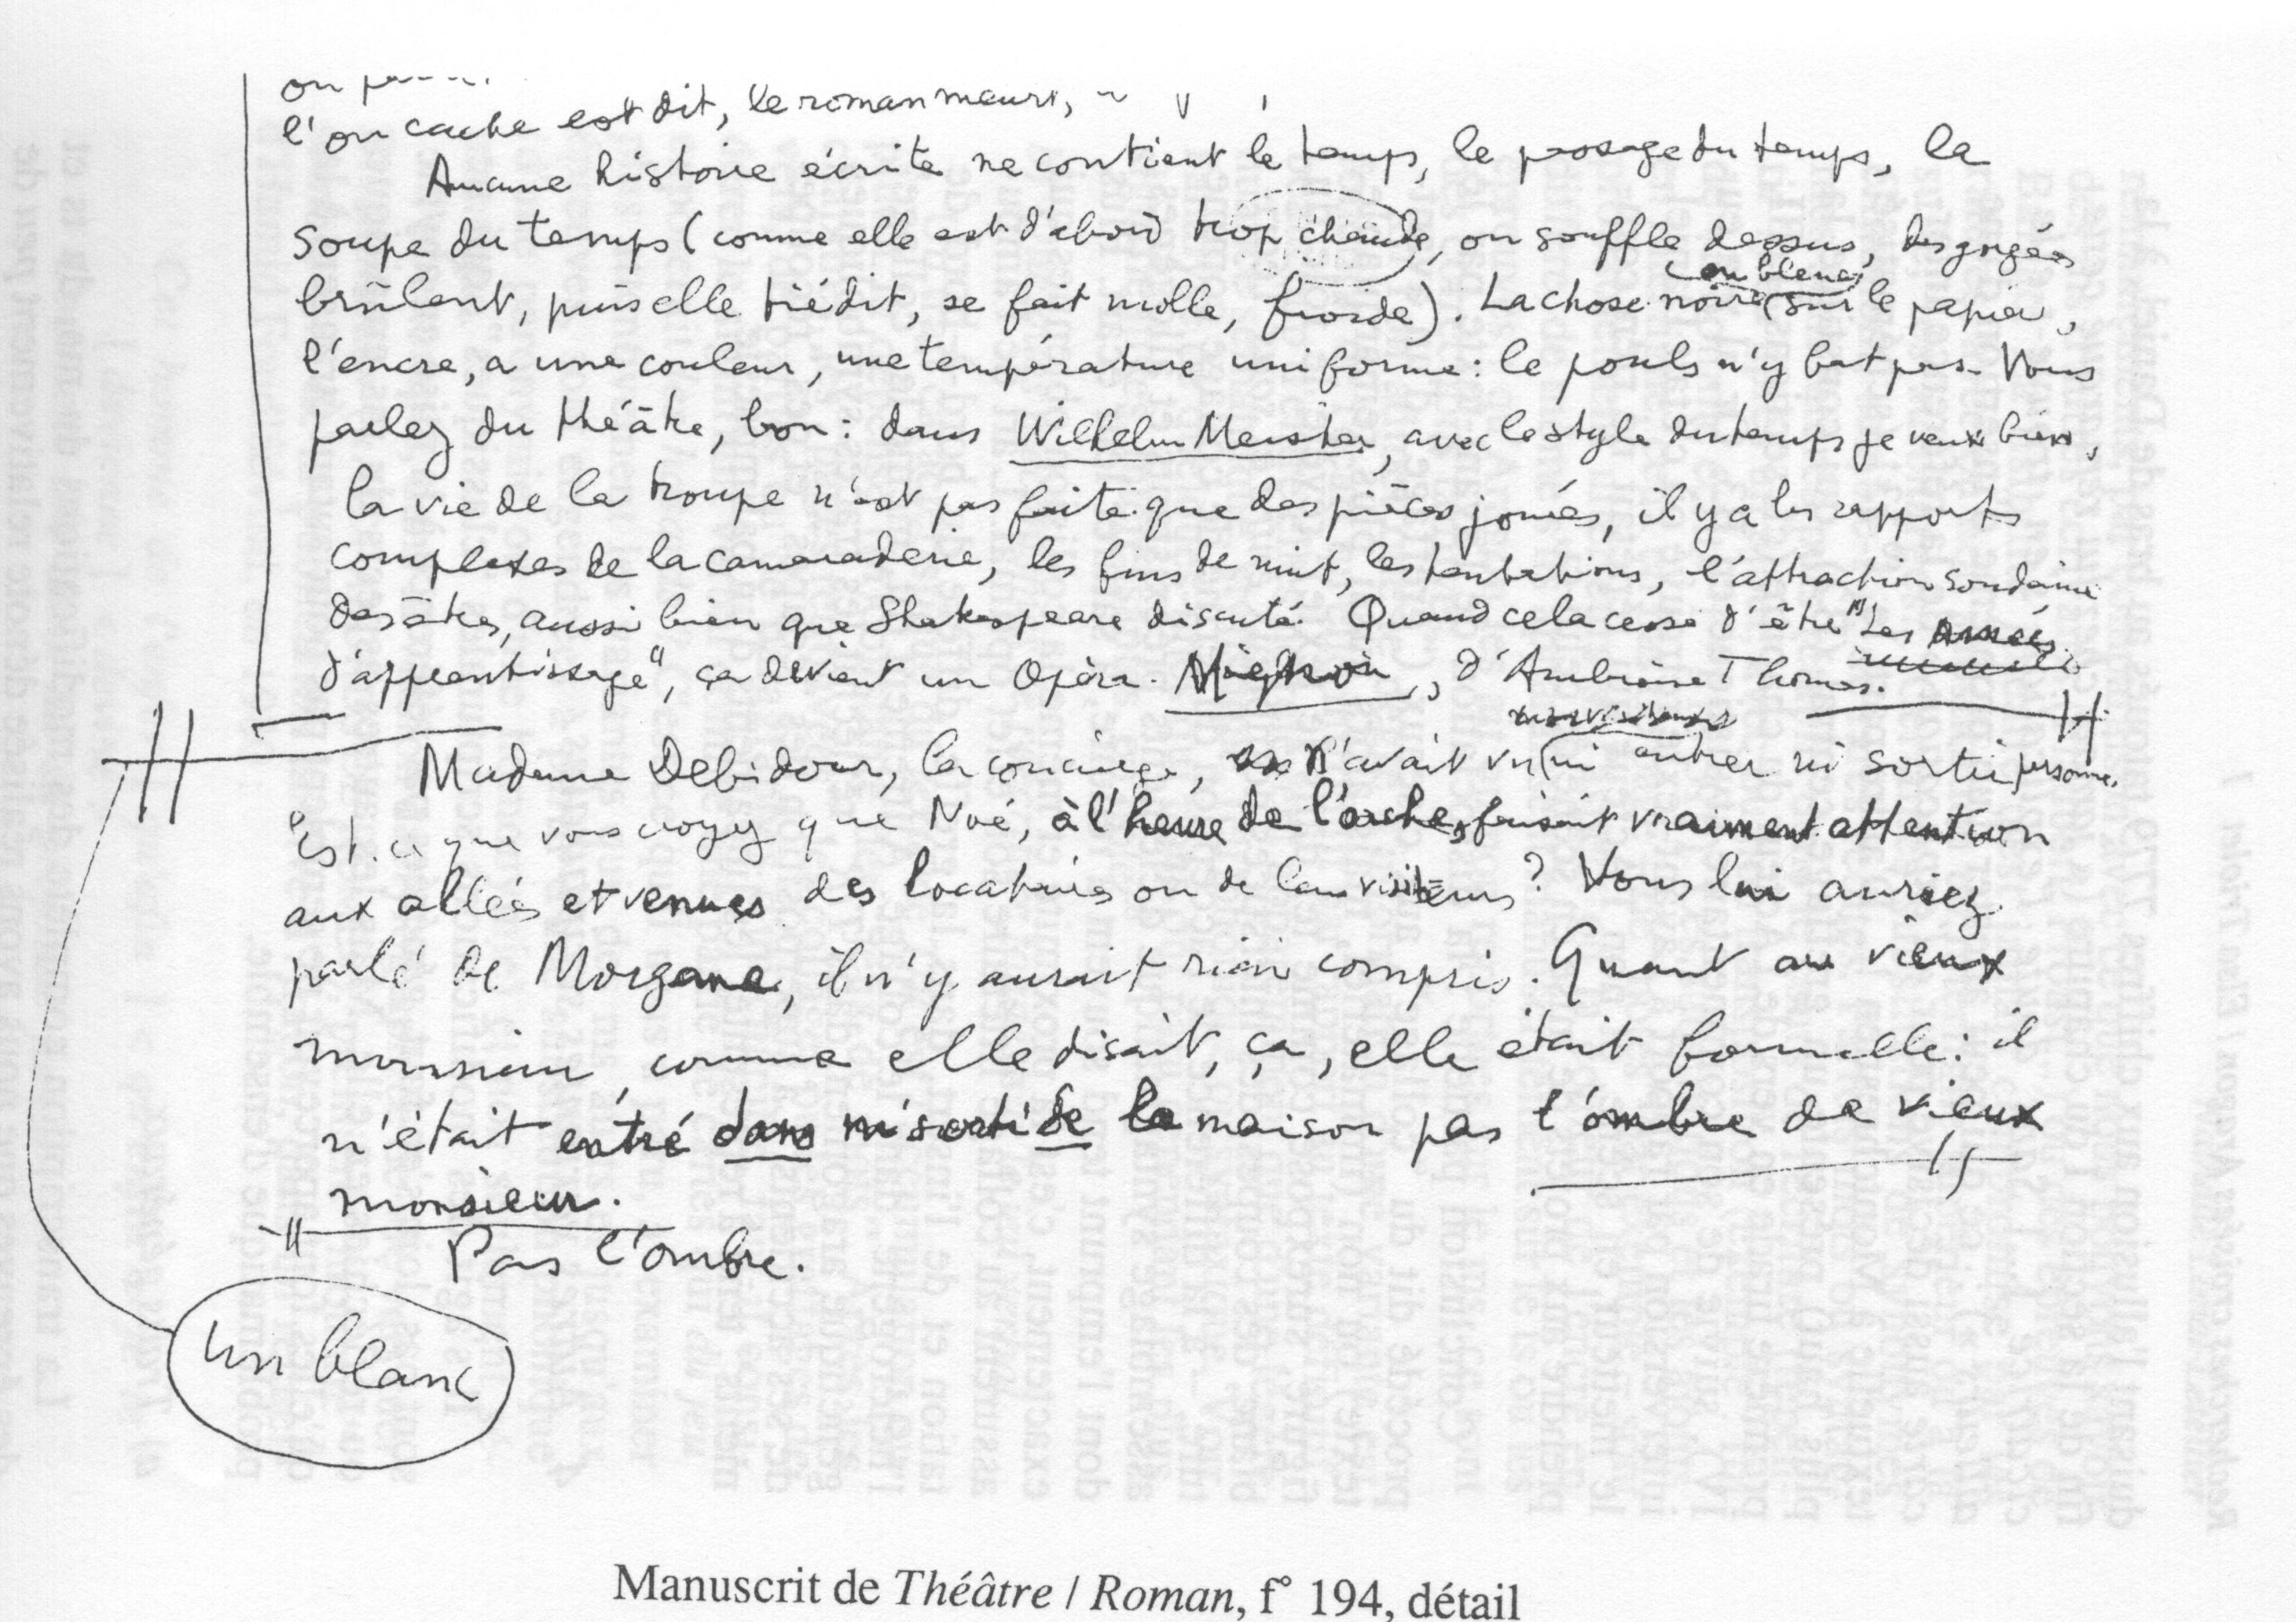 l'on cache est dit, le roman meurt,
Aucune histoire écrite ne contient le temps, le passage du temps, la
soupe du temps (comme elle est d'abord trop chaude, on souffle dessus, des gorgées
ou bleue
brûlent, puis elle tiédit, se fait molle, froide). La chose noire (sur le papier,
l'encre, a une couleur, une température uniforme : le pouls n'y bat pas. Vous
parlez du théâtre, bon : dans Wilhelm Meister, avec le style du temps je veux bien,
la vie de la troupe n'est pas faite que des pièces jouées, il y a les rapports
complexes de la camaraderie, les fins de nuit, les tentations, l'attraction soudaine
des êtres, aussi bien que Shakespeare discuté. Quand cela cesse d'être "Les années
d'apprentissage", ça devient un Opéra. Mignon, d'Ambroise Thomas.
Madame Debidour, la concierge, n'avait vu ni entrer ni sortir personne.
"Est-ce que vous croyez que Noé, à l'heure de l'arche, faisait vraiment attention
aux allées et venues des locataires ou de leurs visiteurs ? Vous lui auriez
parlé de Morgane, il n'y aurait rien compris. Quant au vieux
monsieur, comme elle disait, ça, elle était formelle : il
n'était entré dans ni sorti de la maison pas l'ombre de vieux
monsieur.
Pas l'ombre.
un blanc
Manuscrit de Théâtre / Roman, f° 194, détail